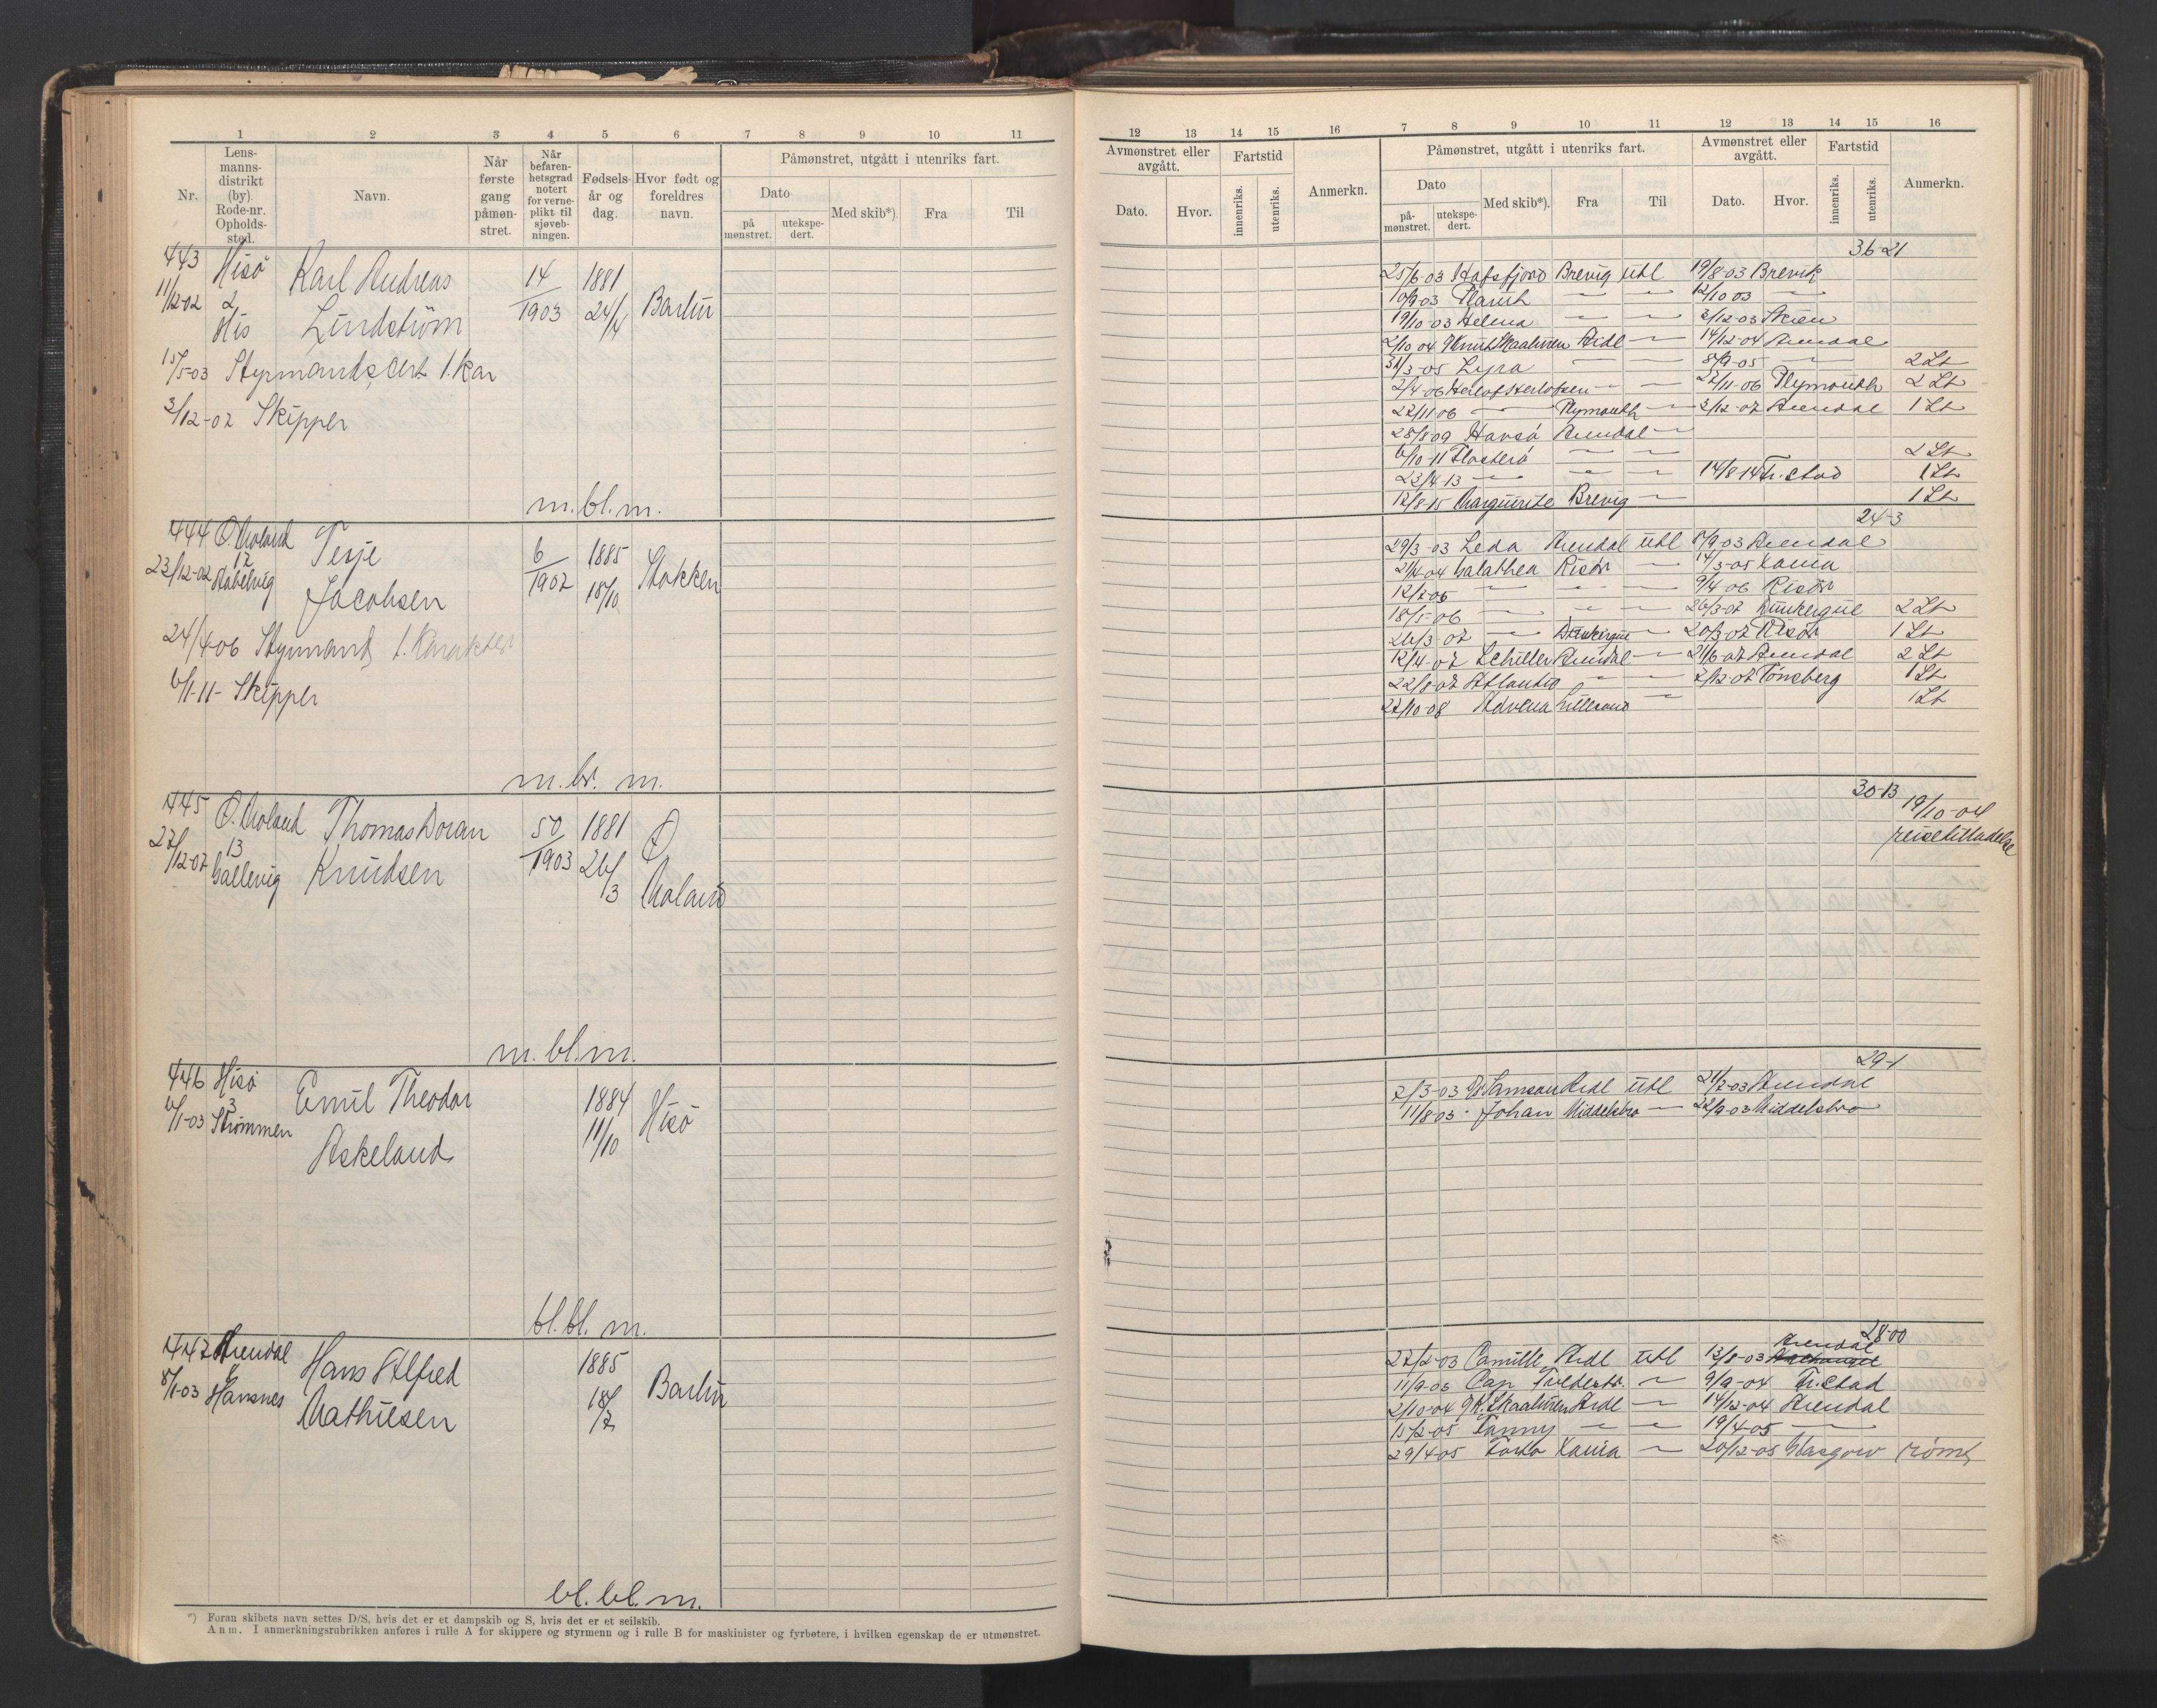 1 2 3 4 5 6 7 8 9 10 11
Nr.
Lens-
manns-
distrikt
(by).
Rode-nr.
Opholds-
sted.
Navn.
Når
første
gang
påmøn-
stret.
Når
befaren-
hetsgrad
notert
for verne-
plikt til
sjøveb-
ningen.
Fødsels-
år og
dag.
Hvor født og
foreldres
navn.
Påmønstret, utgått i utenriks fart.
Dato
på
mønstret.
utekspe-
dert.
Med skib*).
Fra
Til
443 Hisö Karl Andreas 14 1881
11/12-02 2 Lindstrøm 1903 24/4 Barbu
His
15/5-03 Styrmandscert 1. kar
3/12-07 Skipper
m. bl. m.
444 Ö. Moland Terje 6 1885 Stokken
23/12-02 12 Jacobsen 1907 18/10
24/4-06 Styrmand 1. Karakter
6/1-11- Skipper
m. br. m.
445 Ö. Moland Thomas Doran 50 1881 Ö
13 Knudsen 1903 26/3 Moland
m. bl. m.
446 Hisö Emil Theodor 1884 Hisö
6/1-03 3 Strømmen Askeland 11/10
bl. bl. m.
447 Arendal Hans Alfred 1885
8/1-03 Hansnes Mathiesen 18/7 Barbu
bl. bl. m.
*) Foran skibets navn settes D/S, hvis det er et dampskib og S, hvis det er et seilskib.
Anm. I anmerkningsrubrikken anføres i rulle A for skippere og styrmenn og i rulle B for maskinister og fyrbøtere, i hvilken egenskap de er utmønstret.
12 13 14 15 16 7 8 9 10 11 12 13 14 15 16
Avmønstret eller
avgått.
Dato.
Hvor.
Fartstid
innenriks.
utenriks.
Anmerkn.
Påmønstret, utgått i utenriks fart.
Dato
på-
mønstret.
utekspe-
dert.
Med skib*).
Fra
Til
Avmønstret eller
avgått.
Dato.
Hvor.
Fartstid
innenriks.
utenriks.
Anmerkn.
36-21
25/6-03 Hafsfjord Brevig utl 19/8-03 Brevik
10/9-03 — — 12/10 03 —
19/10-03 Helena — — 3/12-03 Skien
2/10 04 Knut Skaaluren Ardl — 14/12-04 Arendal
31/3-05 Lyra — — 8/9-05 — 2 St
2/4-06 Herlof Herlofsen — — 22/11-06 Plymouth 2 St
22/11 06 — Plymouth — 3/12-07 Arendal 1 St
28/8 09 Havsö Arendal —
6/10-11 Flosterö — — 2 St
22/4-13 — — — 14/8-14 Fr. stad 1 St
12/8-15 Marguerite Brevig — 1 St
24-3
29/3-03 Leda Arendal utl 8/9-03 Arendal
21/4-04 Galathea Risör — 14/3-05
12/7-05 — — — 9/4 06 Risör
18/5-06 — — — 26/3-07 Dunkerque 2 St
26/3-07 — Dunkirque — 20/3-07 Risör 1 St
12/4-07 Schiller Arendal — 21/6-07 Arendal 2 St
22/8-07 Atlantic — — 2/12-07 Tönsberg 1 St
27/10-08 Advena Lillesand — 1 St
30-13
19/10-04
reisetilladelse
29-1
2/3-03 Samson Ardl utl 21/7-03 Arendal
11/8-03 Johan Middelsbro — 22/9-03 Middelsbro
28-00
27/2-03 Camilla Ardl utl 13/8-03 Arendal
11/9-03 Cap Tvedestr. — 9/9-04 Fr. stad
2/10-04 K. Skaaluren Ardl — 14/12-04 Arendal
15/2-05 Fanny — — 19/4-05 —
29/4-05 — 20/12-05 Glasgow rømt